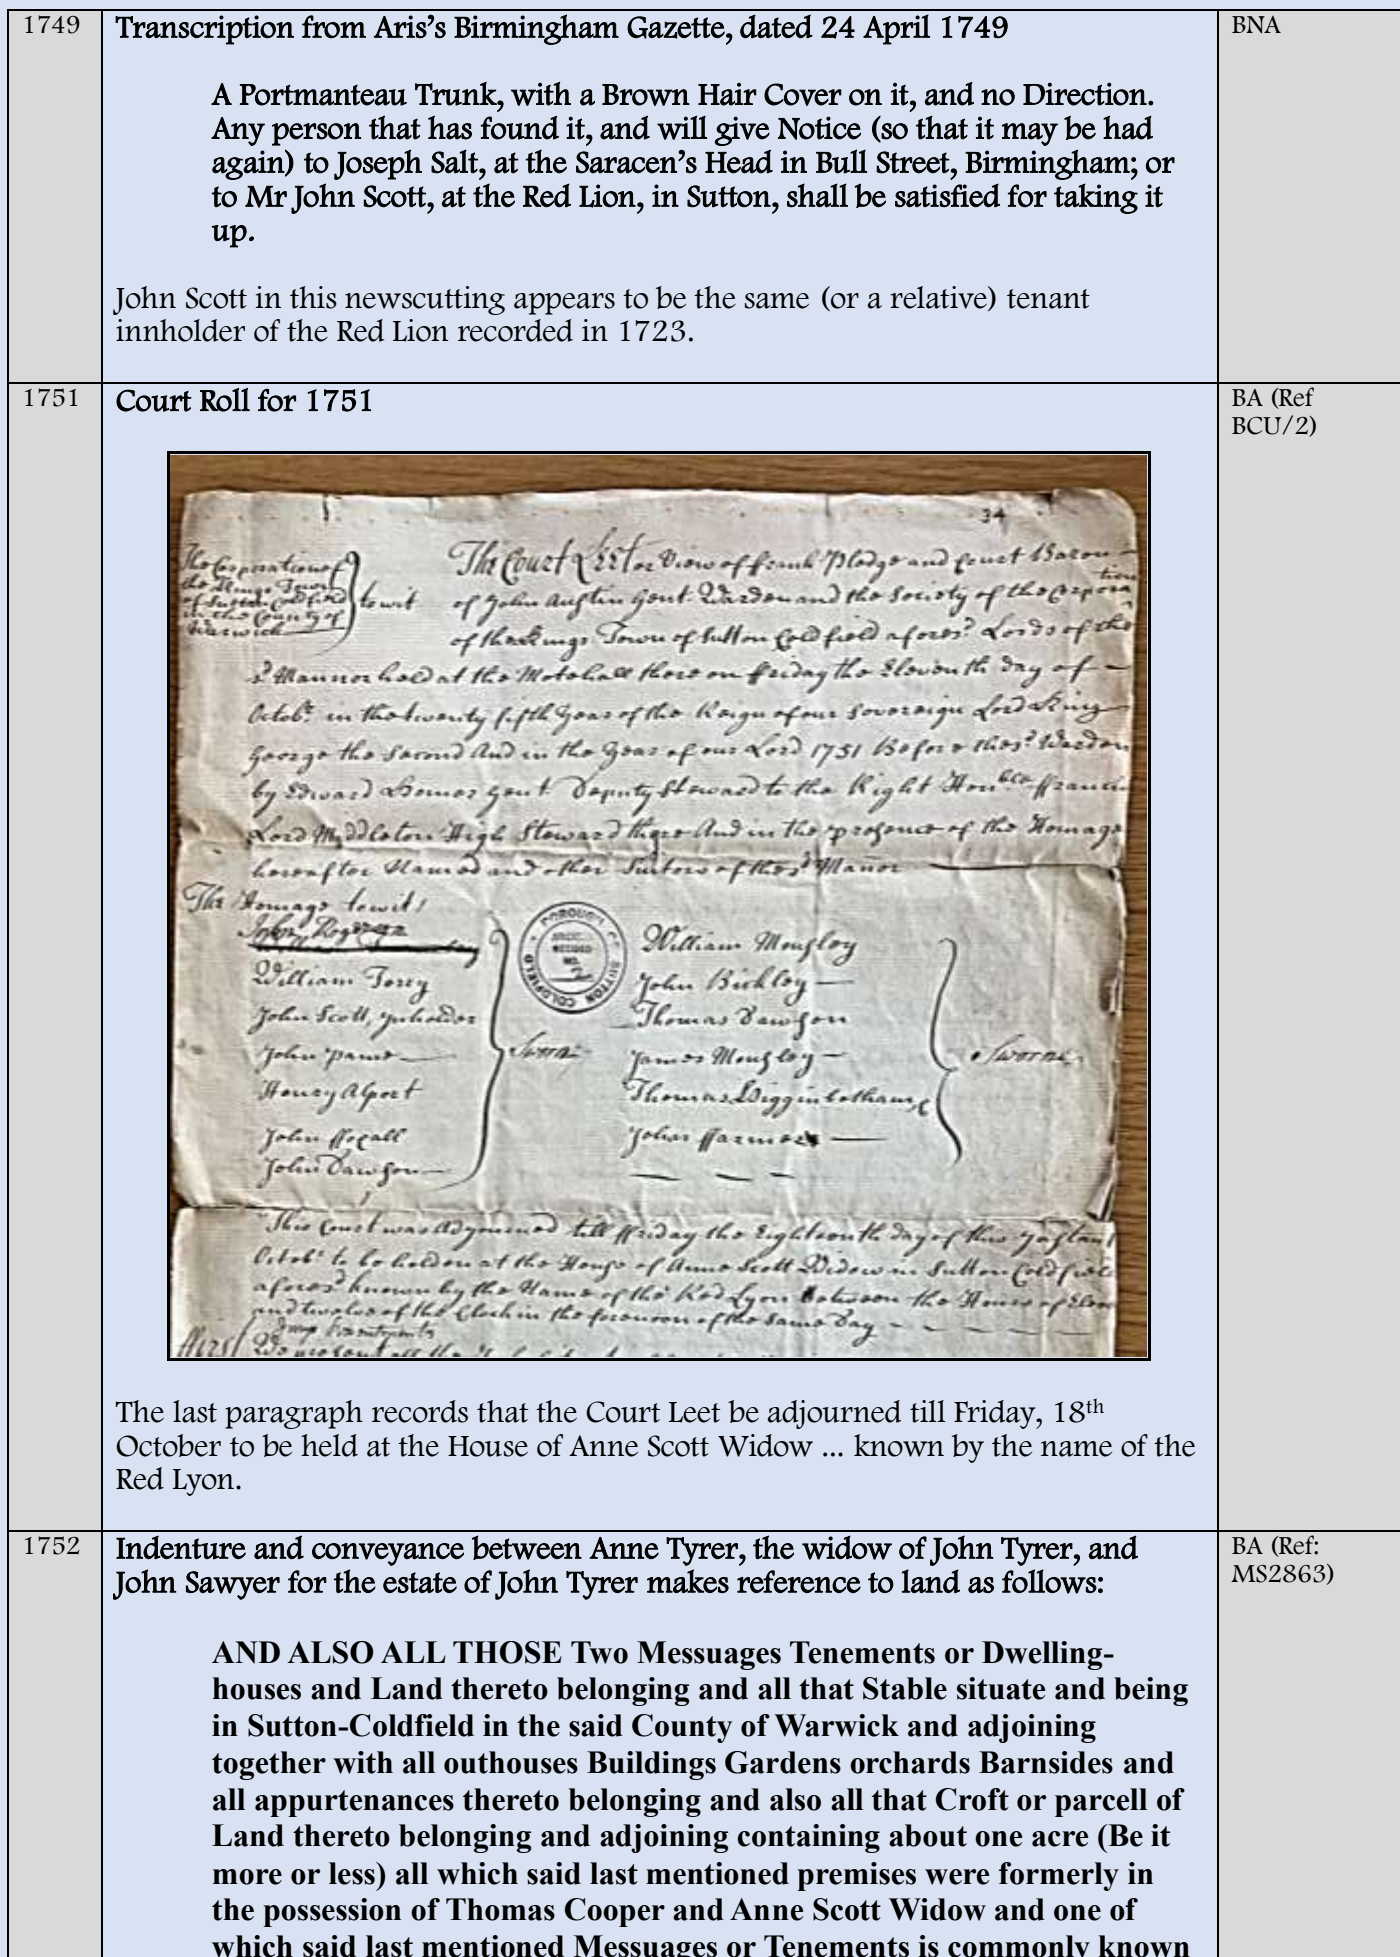 1749
Transcription from Aris's Birmingham Gazette, dated 24 April 1749
BNA
A Portmanteau Trunk, with a Brown Hair Cover on it, and no Direction.
Any person that has found it, and will give Notice (so that it may be had
again) to Joseph Salt, at the Saracen's Head in Bull Street, Birmingham; or
to Mr John Scott, at the Red Lion, in Sutton, shall be satisfied for taking it
up.
John Scott in this newscutting appears to be the same (or a relative) tenant
innholder of the Red Lion recorded in 1723.
1751
Court Roll for 1751
BA (Ref
BCU/2)
34
The Corporation of
the Kings Town
of Sutton Coldfield
in the County of
Warwick
to wit
The Court Leet or View of ffrank Pledge and Court Baron
of John Austin Gent. Warden and the Society of the Corpora
tion
of the Kings Town of Sutton Coldfield afores.d Lords of the
s.d Mannor held at the Motehall there on ffriday the Eleventh day of
Octob.r in the twenty fifth Year of the Reign of our Sovereign Lord King
George the Second And in the Year of our Lord 1751 Before the s.d Warden
by Edward Homer Gent Deputy Steward to the Right Hon.ble ffrancis
Lord Myddleton High Steward there And in the presence of the Homage
hereafter Named and other Suitors of the s.d Manor
The Homage to wit
William
John Scott, Inholder
John
Henry Alport
John
John Dawson
Sworne
BOROUGH OF SUTTON COLDFIELD
William Mousley
John Bickley
Thomas Dawson
James Mousley
Thomas Higginbotham
John ffarmer
Sworne
This Court was Adjourned till ffriday the Eighteenth day of this Instant
Octob.r to be holden at the House of Anne Scott Widow in Sutton Coldfield
afores.d known by the Name of the Red Lyon Between the Hours of Eleven
and twelve of the Clock in the forenoon of the same Day
We present all the
The last paragraph records that the Court Leet be adjourned till Friday, 18th
October to be held at the House of Anne Scott Widow ... known by the name of the
Red Lyon.
1752
Indenture and conveyance between Anne Tyrer, the widow of John Tyrer, and
John Sawyer for the estate of John Tyrer makes reference to land as follows:
BA (Ref:
MS2863)
AND ALSO ALL THOSE Two Messuages Tenements or Dwelling-
houses and Land thereto belonging and all that Stable situate and being
in Sutton-Coldfield in the said County of Warwick and adjoining
together with all outhouses Buildings Gardens orchards Barnsides and
all appurtenances thereto belonging and also all that Croft or parcell of
Land thereto belonging and adjoining containing about one acre (Be it
more or less) all which said last mentioned premises were formerly in
the possession of Thomas Cooper and Anne Scott Widow and one of
which said last mentioned Messuages or Tenements is commonly known